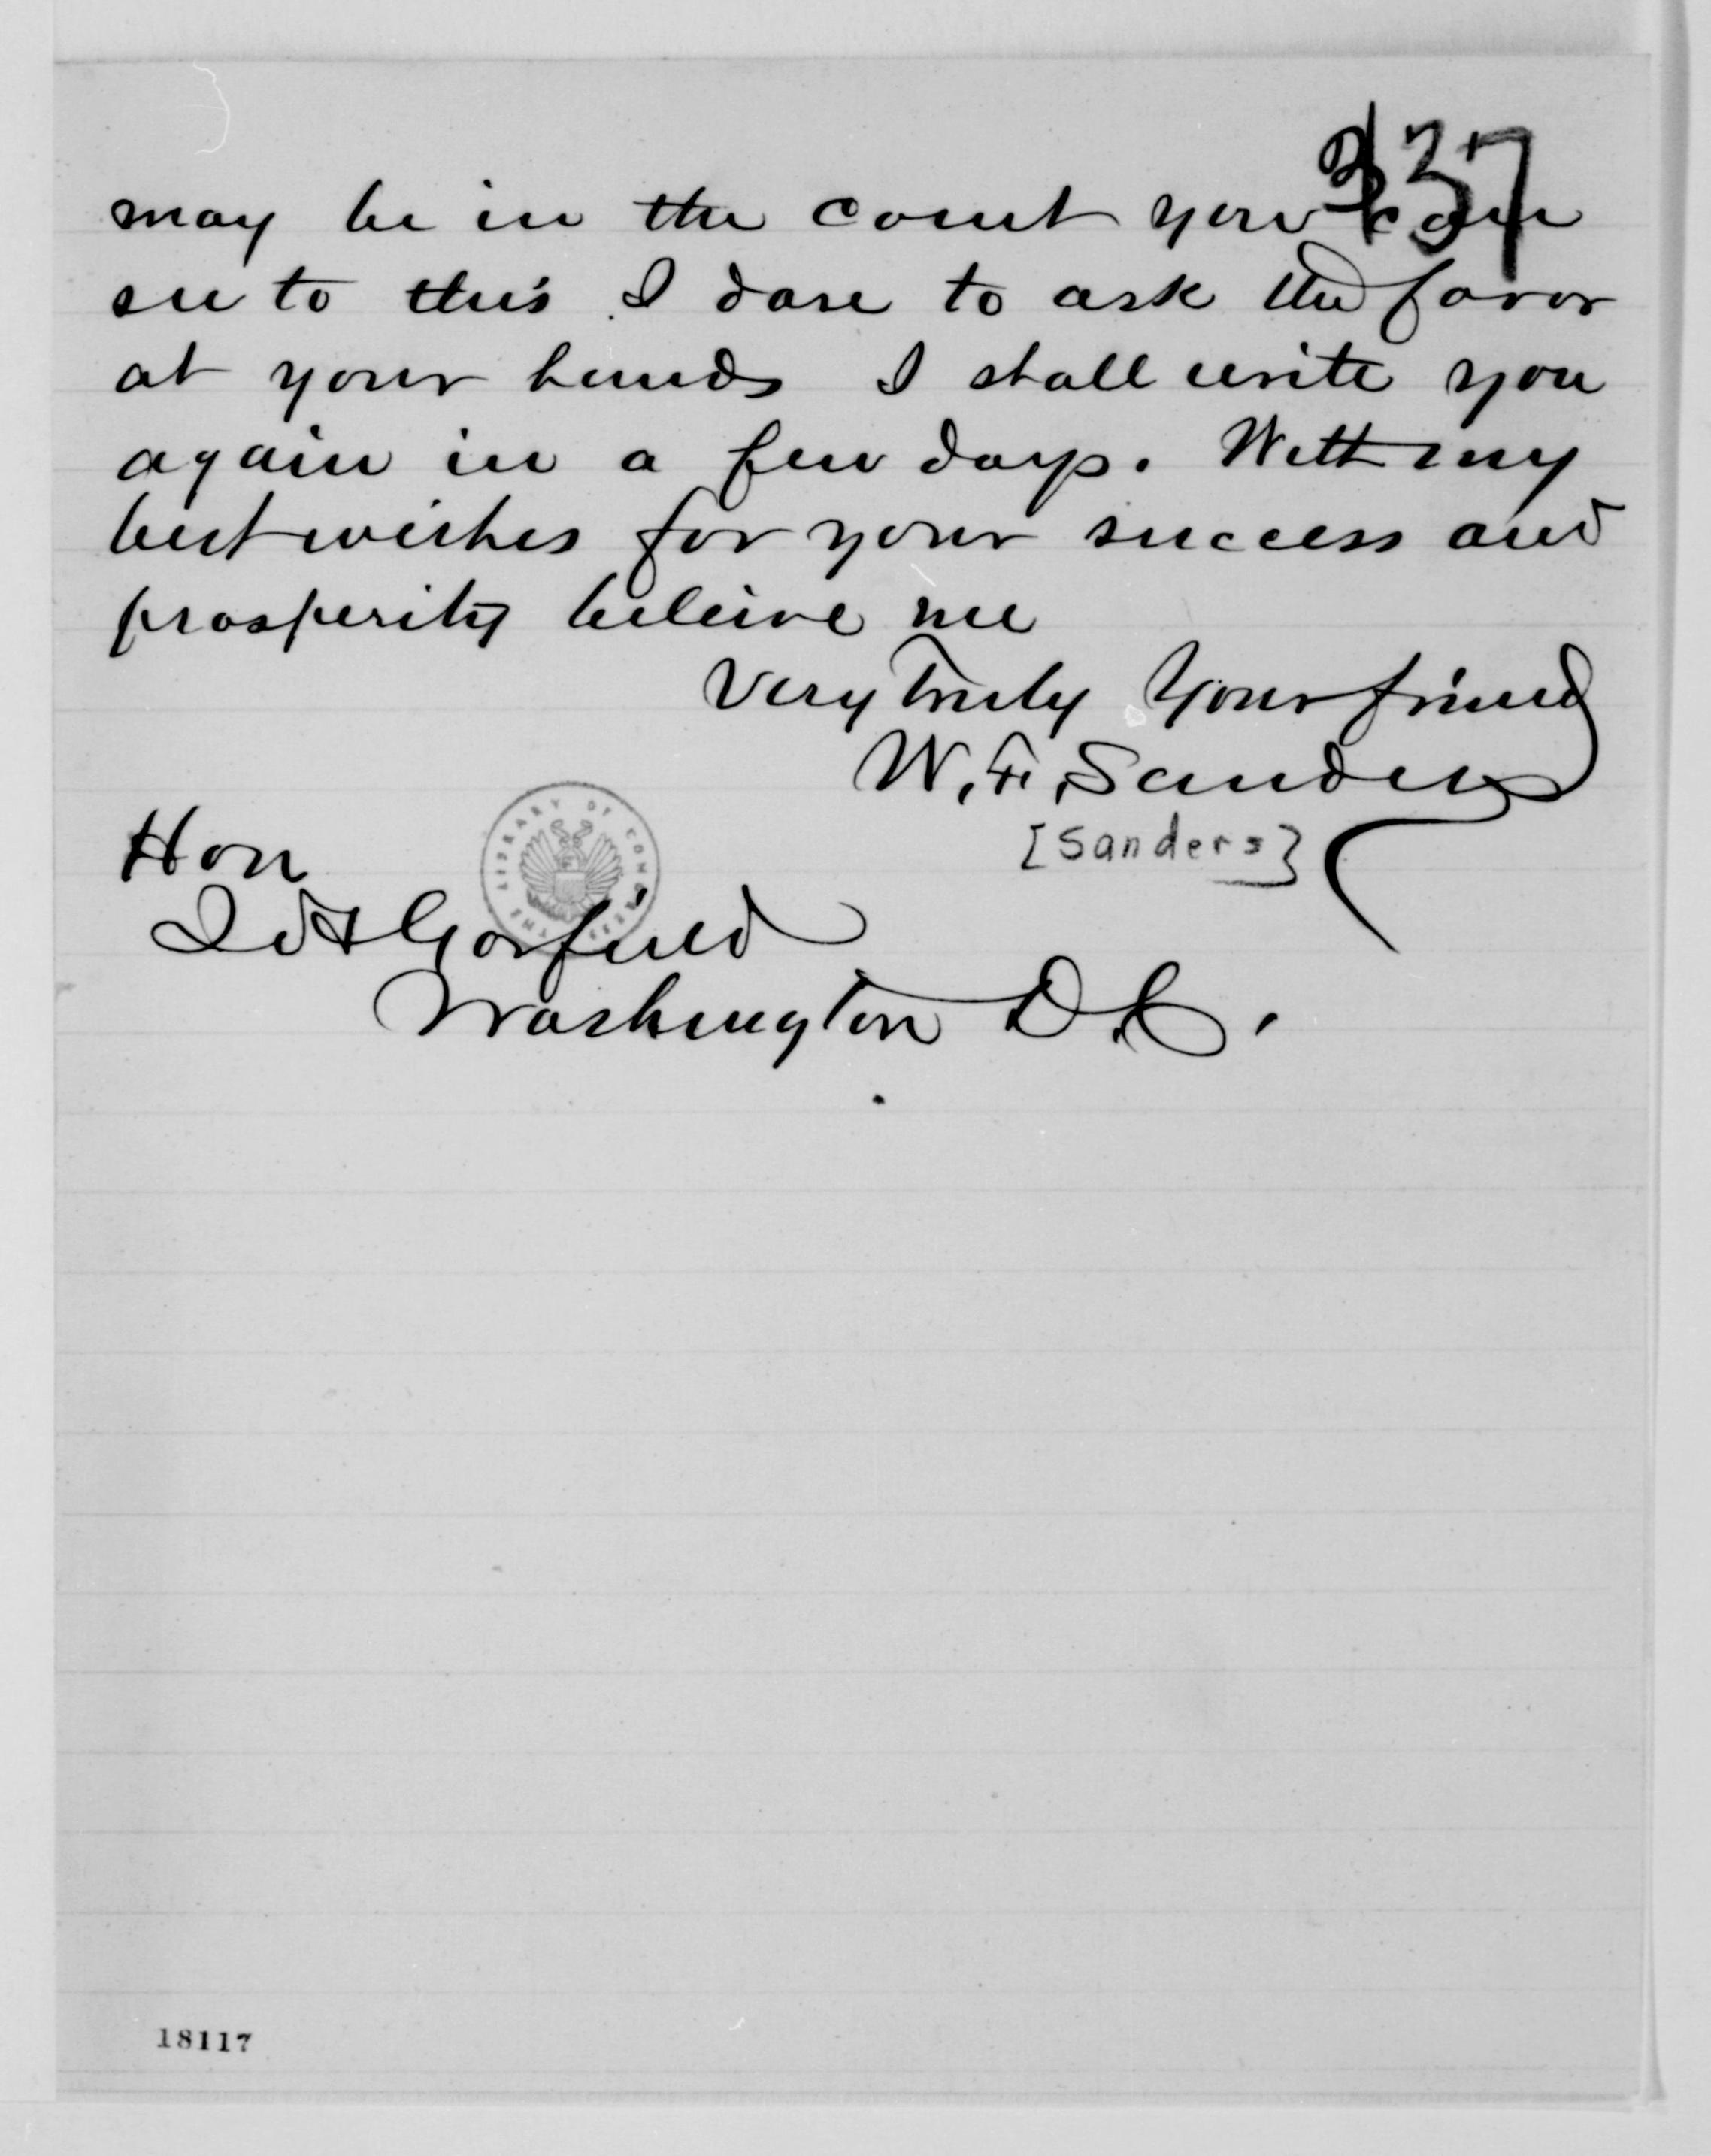 337
may be in the court you can
see to this I dare to ask the favor
at your hands I shall write you
again in a few days. With my
best wishes for your success and
prosperity beleive me
Very Truly Your friend
W. F. Sanders
[Sanders]
Hon
THE LIBRARY OF CONGRESS
J A Garfield
Washington D.C.
18117